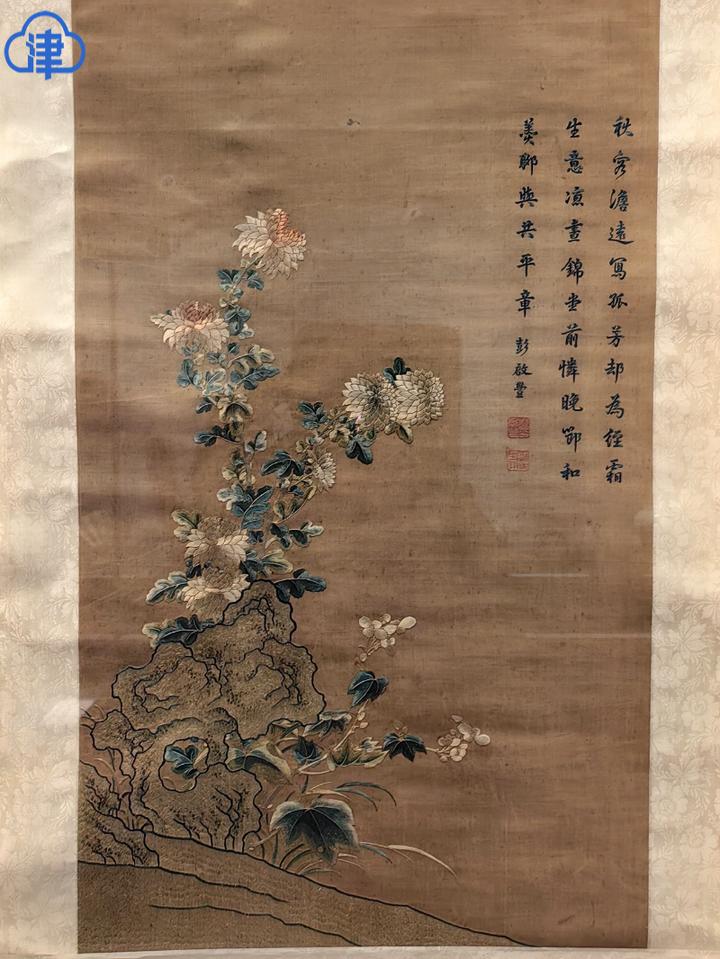 津
秋容澹遠寫孤芳却為經霜
生意凉晝錦堂前憐晚節和
羹聊與共平章
彭啟豐